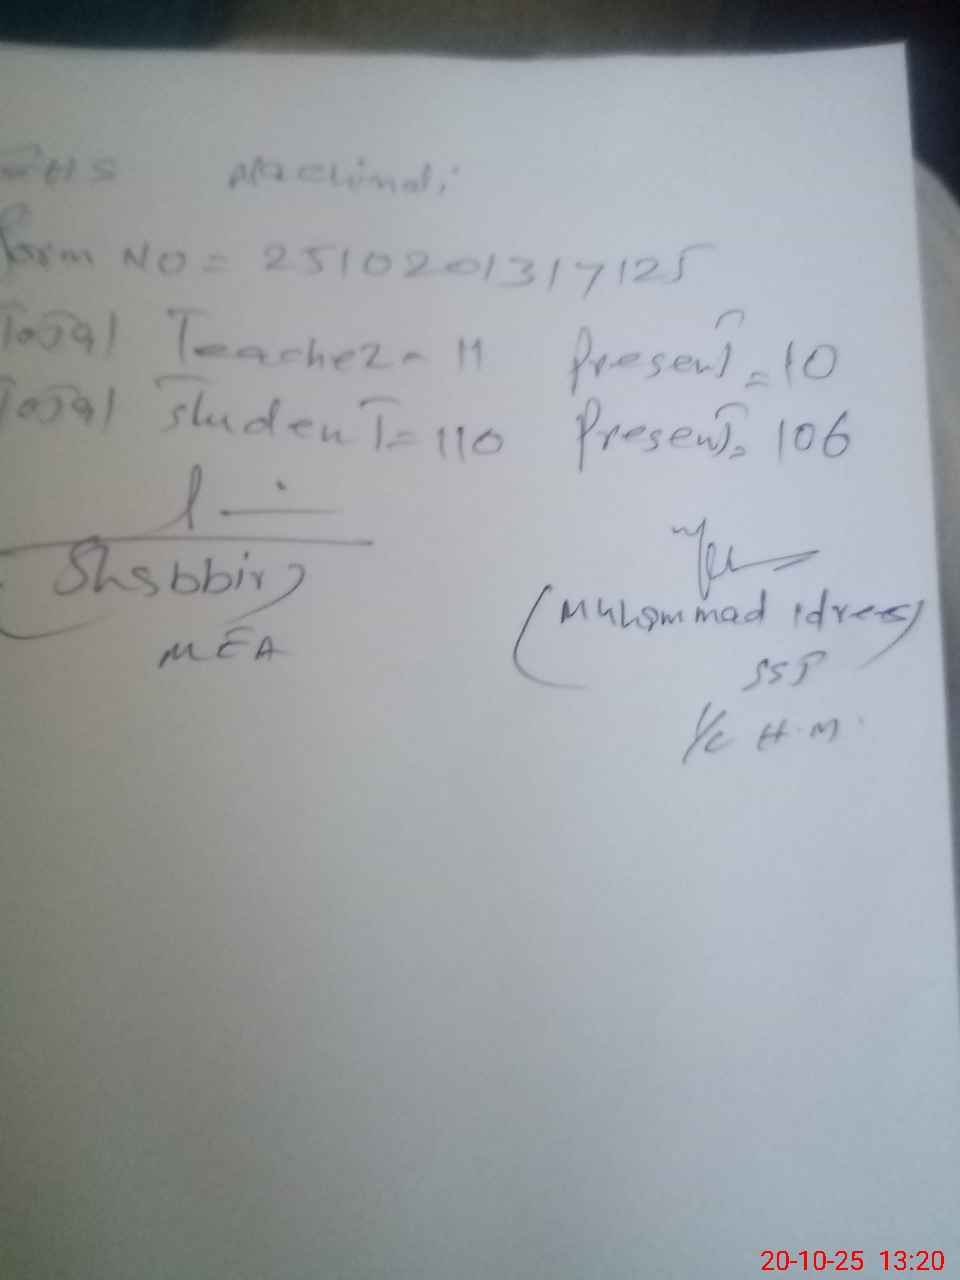 HS
Form NO = 2510201317125
Total Teacher = 11 Present = 10
Total Student = 110 Present = 106
(Shabbir)
MEA
(Muhammad Idrees)
SST
I/C H.M.
20-10-25 13:20